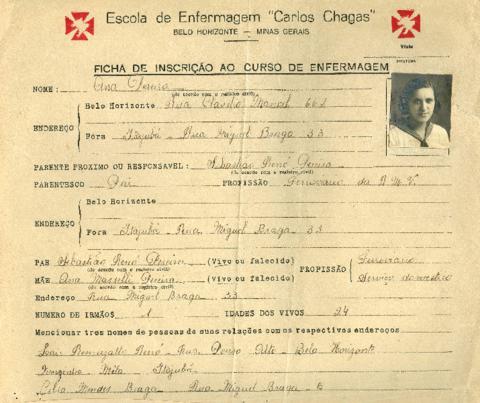 Escola de Enfermagem "Carlos Chagas"
BELO HORIZONTE — MINAS GERAIS
FICHA DE INSCRIÇÃO AO CURSO DE ENFERMAGEM
NOME: Ana Pereira
(de acordo com o registro civil)
Belo Horizonte Rua Claudio Manoel
ENDEREÇO
Fora Itajubá - Rua Miguel Braga 33
PARENTE PROXIMO OU RESPONSAVEL: Sebastião Renó Pereira
(de acordo com o registro civil)
PARENTESCO Pai PROFISSÃO Ferroviario da R M V.
Belo Horizonte
ENDEREÇO
Fora Itajubá - Rua Miguel Braga 33
PAE Sebastião Renó Pereira (Vivo ou falecido) PROFISSÃO Ferroviario
(de acordo com o registro civil)
MÃE Ana Pereira (vivo ou falecido) Serviço domestico
(de acordo com o registro civil)
Endereço Rua Miguel Braga 33
NUMERO DE IRMÃOS 1 IDADES DOS VIVOS 24
Mencionar tres nomes de pessoas de suas relações com os respectivos endereços
Renó - Rua Ouro - Belo Horizonte
Itajubá
Celia Mendes Braga - Rua Miguel Braga -